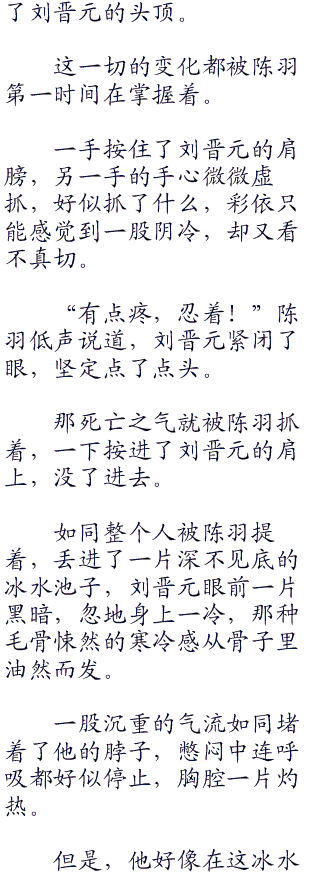 了刘晋元的头顶。
这一切的变化都被陈羽
第一时间在掌握着。
一手按住了刘晋元的肩
膀，另一手的手心微微虚
抓，好似抓了什么，彩依只
能感觉到一股阴冷，却又看
不真切。
“有点疼，忍着！”陈
羽低声说道，刘晋元紧闭了
眼，坚定点了点头。
那死亡之气就被陈羽抓
着，一下按进了刘晋元的肩
上，没了进去。
如同整个人被陈羽提
着，丢进了一片深不见底的
冰水池子，刘晋元眼前一片
黑暗，忽地身上一冷，那种
毛骨悚然的寒冷感从骨子里
油然而发。
一股沉重的气流如同堵
着了他的脖子，憋闷中连呼
吸都好似停止，胸腔一片灼
热。
但是，他好像在这冰水